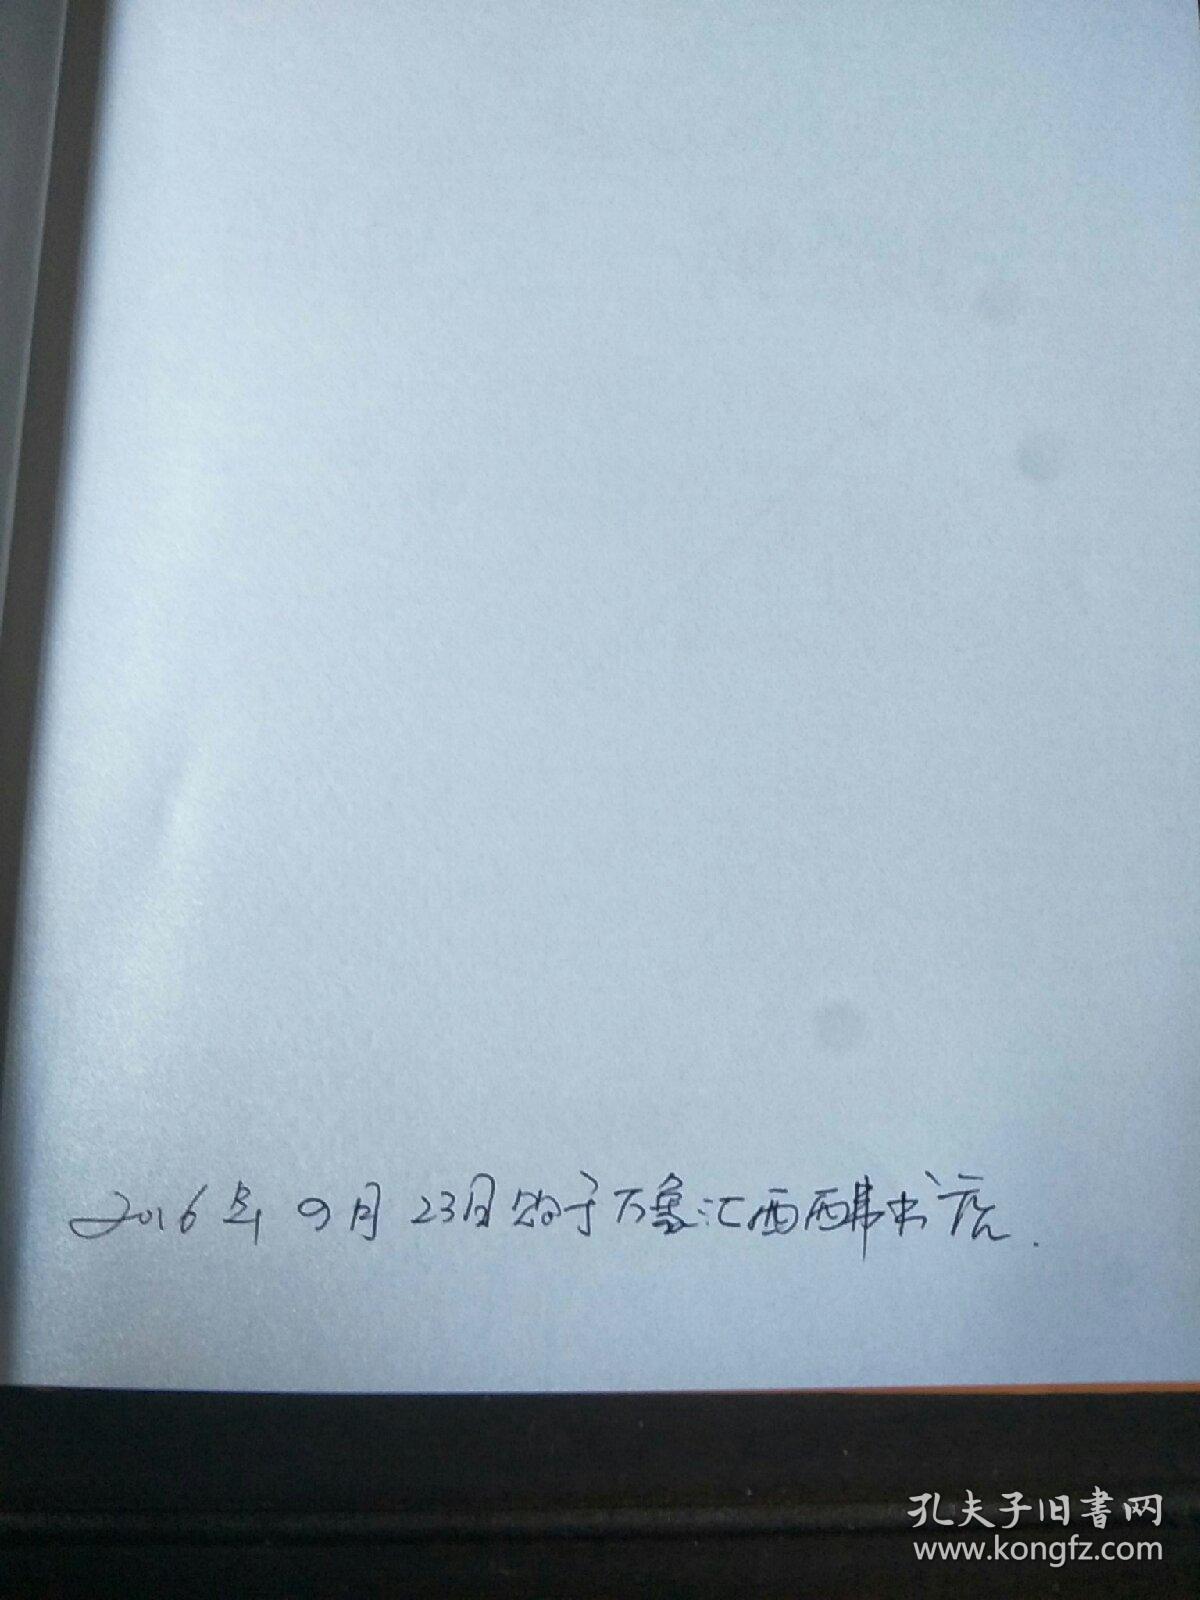 2016年9月23日购于万象汇西西弗书店.
孔夫子旧書网
www.kongfz.com